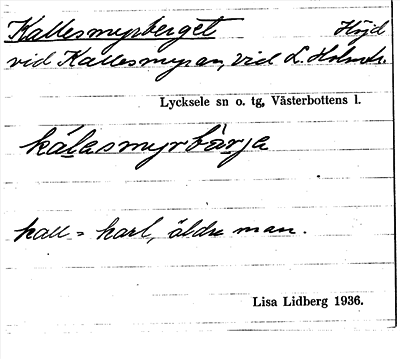 Kallesmyrberget Höjd
vid Kallesmyran, vid L. Holmtr.
Lycksele sn o. tg, Västerbottens l.
kálasmyrbärja
kall = karl, äldre man.
Lisa Lidberg 1936.